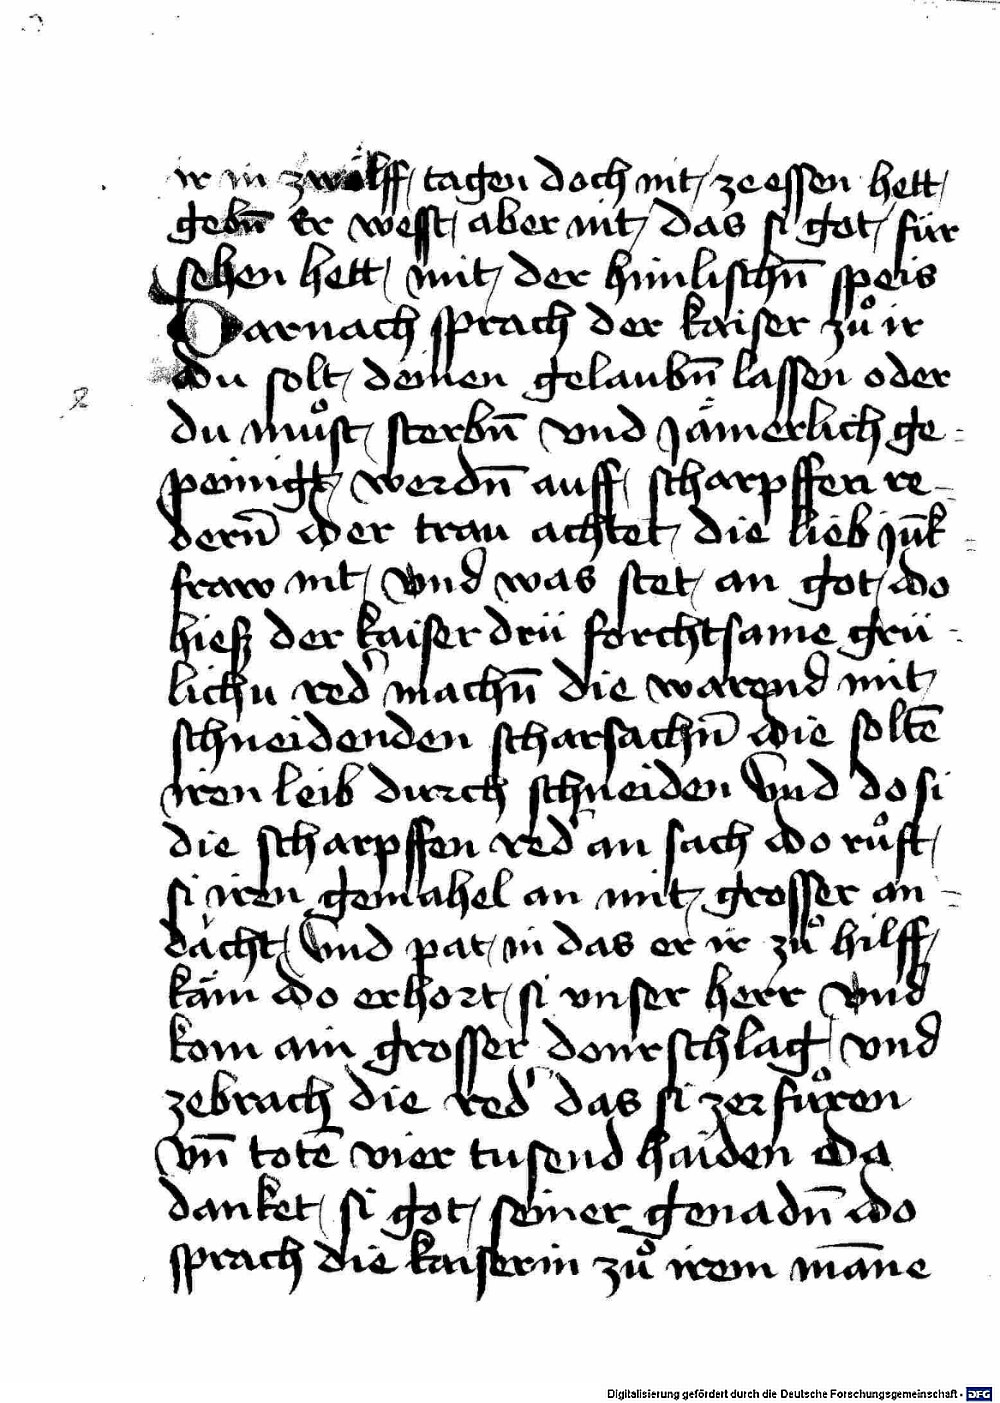 ir in zwölff tagen doch nit ze essen hett
gebn̄ Er west aber nit das si got für
sehen hett mit der himlischn̄ speis
Darnach sprach der kaiser zů ir
du solt deinen gelaubn̄ lassen oder
du můst sterbn̄ vnd jämerlich ge=
peinigt werdn̄ auff scharpffen re=
dern̄ der trau achtet die lieb jūk=
fraw nit vnd was stet an got do
hiesz der kaiser drü forchtsame grü=
lichu red' machn̄ die warend mit
schneidenden scharsachn̄ die soltē
iren leib durch schneiden Vnd do si
die scharpffen red' an sach do růft
si iren gemahel an mit grosser an=
dächt Vnd pat in das er ir zů hilff
käm do erhort si vnser herr vnd
kom ain grosser donrschlag vnd
zebrach die red' das si zerfůren
vn̄ totē vier tusend haiden Da
danket si got seiner genadn̄ do
sprach die kaiserin zů irem māne
Digitalisierung gefördert durch die Deutsche Forschungsgemeinschaft - DFG